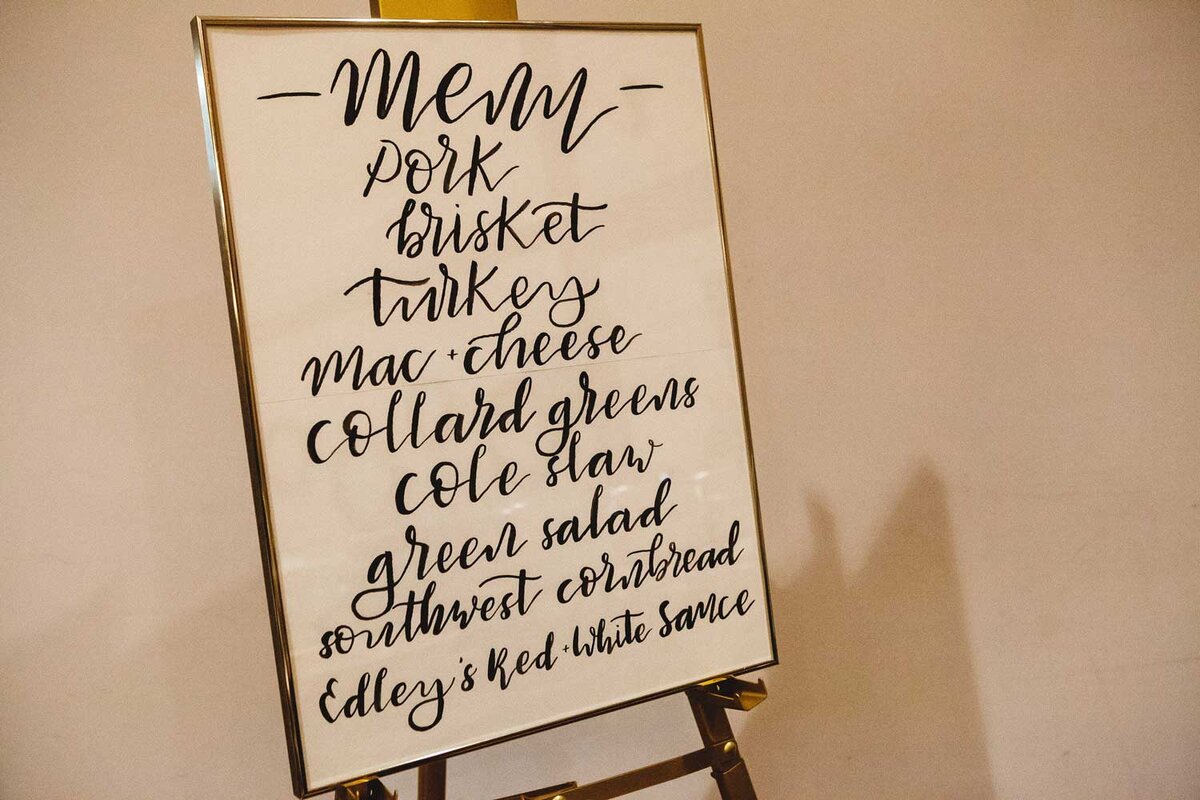 - Menu -
Pork
brisket
turkey
Mac + cheese
collard greens
cole slaw
green salad
southwest cornbread
Edley's Red + White Sauce